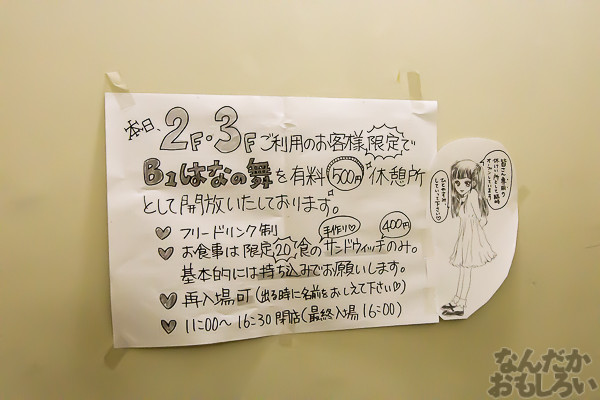 本日、2F・3Fご利用のお客様、限定で
B1はなの舞を有料500円休憩所
として開放いたしております。
フリードリンク制
手作り♡ 400円
お食事は限定20食のサンドウィッチのみ。
基本的には持ち込みでお願いします。
再入場可(出る時に名前をおしえて下さい♡)
11:00〜16:30閉店(最終入場16:00)
していって下さい♡
なんだか
おもしろい